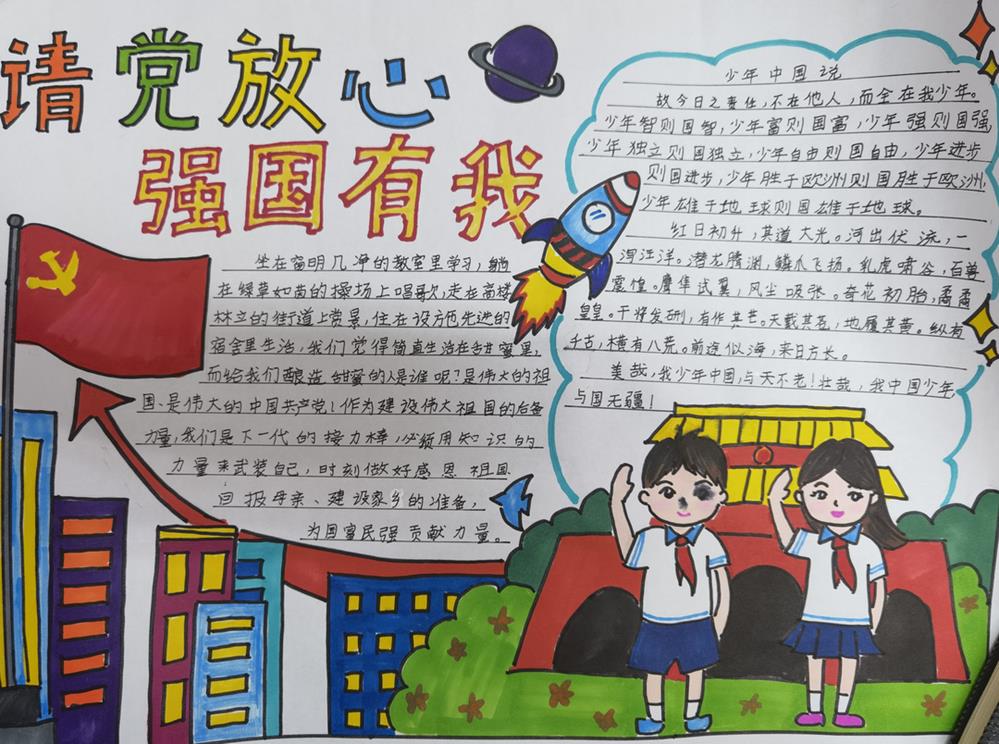 请党放心
强国有我
坐在窗明几净的教室里学习，躺
在绿草如茵的操场上唱歌，走在高楼
林立的街道上赏景，住在设施先进的
宿舍里生活，我们觉得简直生活在甜蜜里，
而给我们酿造甜蜜的人是谁呢？是伟大的祖
国、是伟大的中国共产党！作为建设伟大祖国的后备
力量，我们是下一代的接力棒，必须用知识的
力量来武装自己，时刻做好感恩祖国
回报母亲、建设家乡的准备，
为国富民强贡献力量。
少年中国说
故今日之责任，不在他人，而全在我少年。
少年智则国智，少年富则国富，少年强则国强，
少年独立则国独立，少年自由则国自由，少年进步
则国进步，少年胜于欧洲则国胜于欧洲，
少年雄于地球则国雄于地球。
红日初升，其道大光。河出伏流，一
泻汪洋。潜龙腾渊，鳞爪飞扬。乳虎啸谷，百兽
震惶。鹰隼试翼，风尘吸张。奇花初胎，矞矞
皇皇。干将发硎，有作其芒。天戴其苍，地履其黄。纵有
千古，横有八荒。前途似海，来日方长。
美哉，我少年中国，与天不老！壮哉，我中国少年
与国无疆！